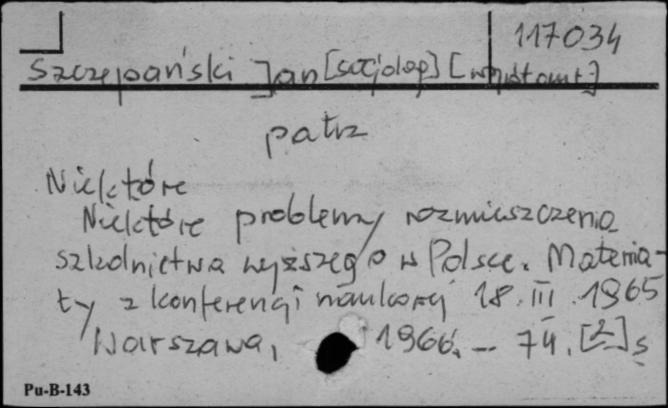 117034
Szczepański Jan [socjolog] [współaut.]
patrz
Niektóre
Niektóre problemy rozmieszczenia
szkolnictwa wyższego w Polsce. Materia-
ły z konferencji naukowej 18.III.1965
Warszawa, 1966. – 74, [2] s
Pu-B-143